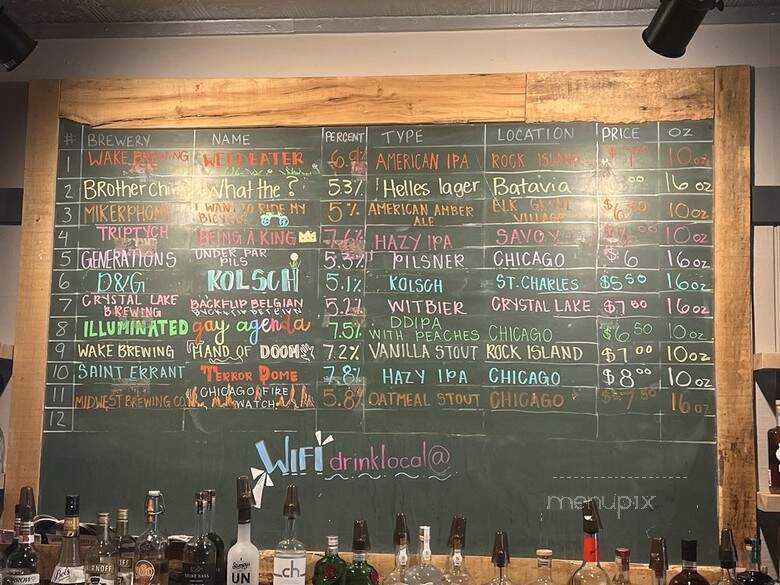 # BREWERY NAME PERCENT TYPE LOCATION PRICE OZ
1 WAKE BREWING WEEDEATER 6.9% AMERICAN IPA ROCK ISLAND 10 oz
2 Brother Chimp What the? 5.3% Helles lager Batavia 16 oz
3 MIKERPHONE I WANT TO RIDE MY BICYCLE 5% AMERICAN AMBER ALE ELK GROVE VILLAGE 10 oz
4 TRIPTYCH BEING A KING 7.6% HAZY IPA SAVOY 10 oz
5 GENERATIONS UNDER PAR PILS 5.3% PILSNER CHICAGO $6 16 oz
6 D&G KOLSCH 5.1% KOLSCH ST. CHARLES $5 50 16 oz
7 CRYSTAL LAKE BREWING BACKFLIP BELGIAN 5.2% WITBIER CRYSTAL LAKE $7 50 16 oz
8 ILLUMINATED gay agenda 7.5% DDIPA WITH PEACHES CHICAGO $6 50 10 oz
9 WAKE BREWING HAND OF DOOM 7.2% VANILLA STOUT ROCK ISLAND $7 00 10 oz
10 SAINT ERRANT TERROR DOME 7.8% HAZY IPA CHICAGO $8 00 10 oz
11 MIDWEST BREWING CO. CHICAGO FIRE WATCH 5.8% OATMEAL STOUT CHICAGO $7 50 16 oz
12
WIFI drinklocal@
menupix
UN
ch